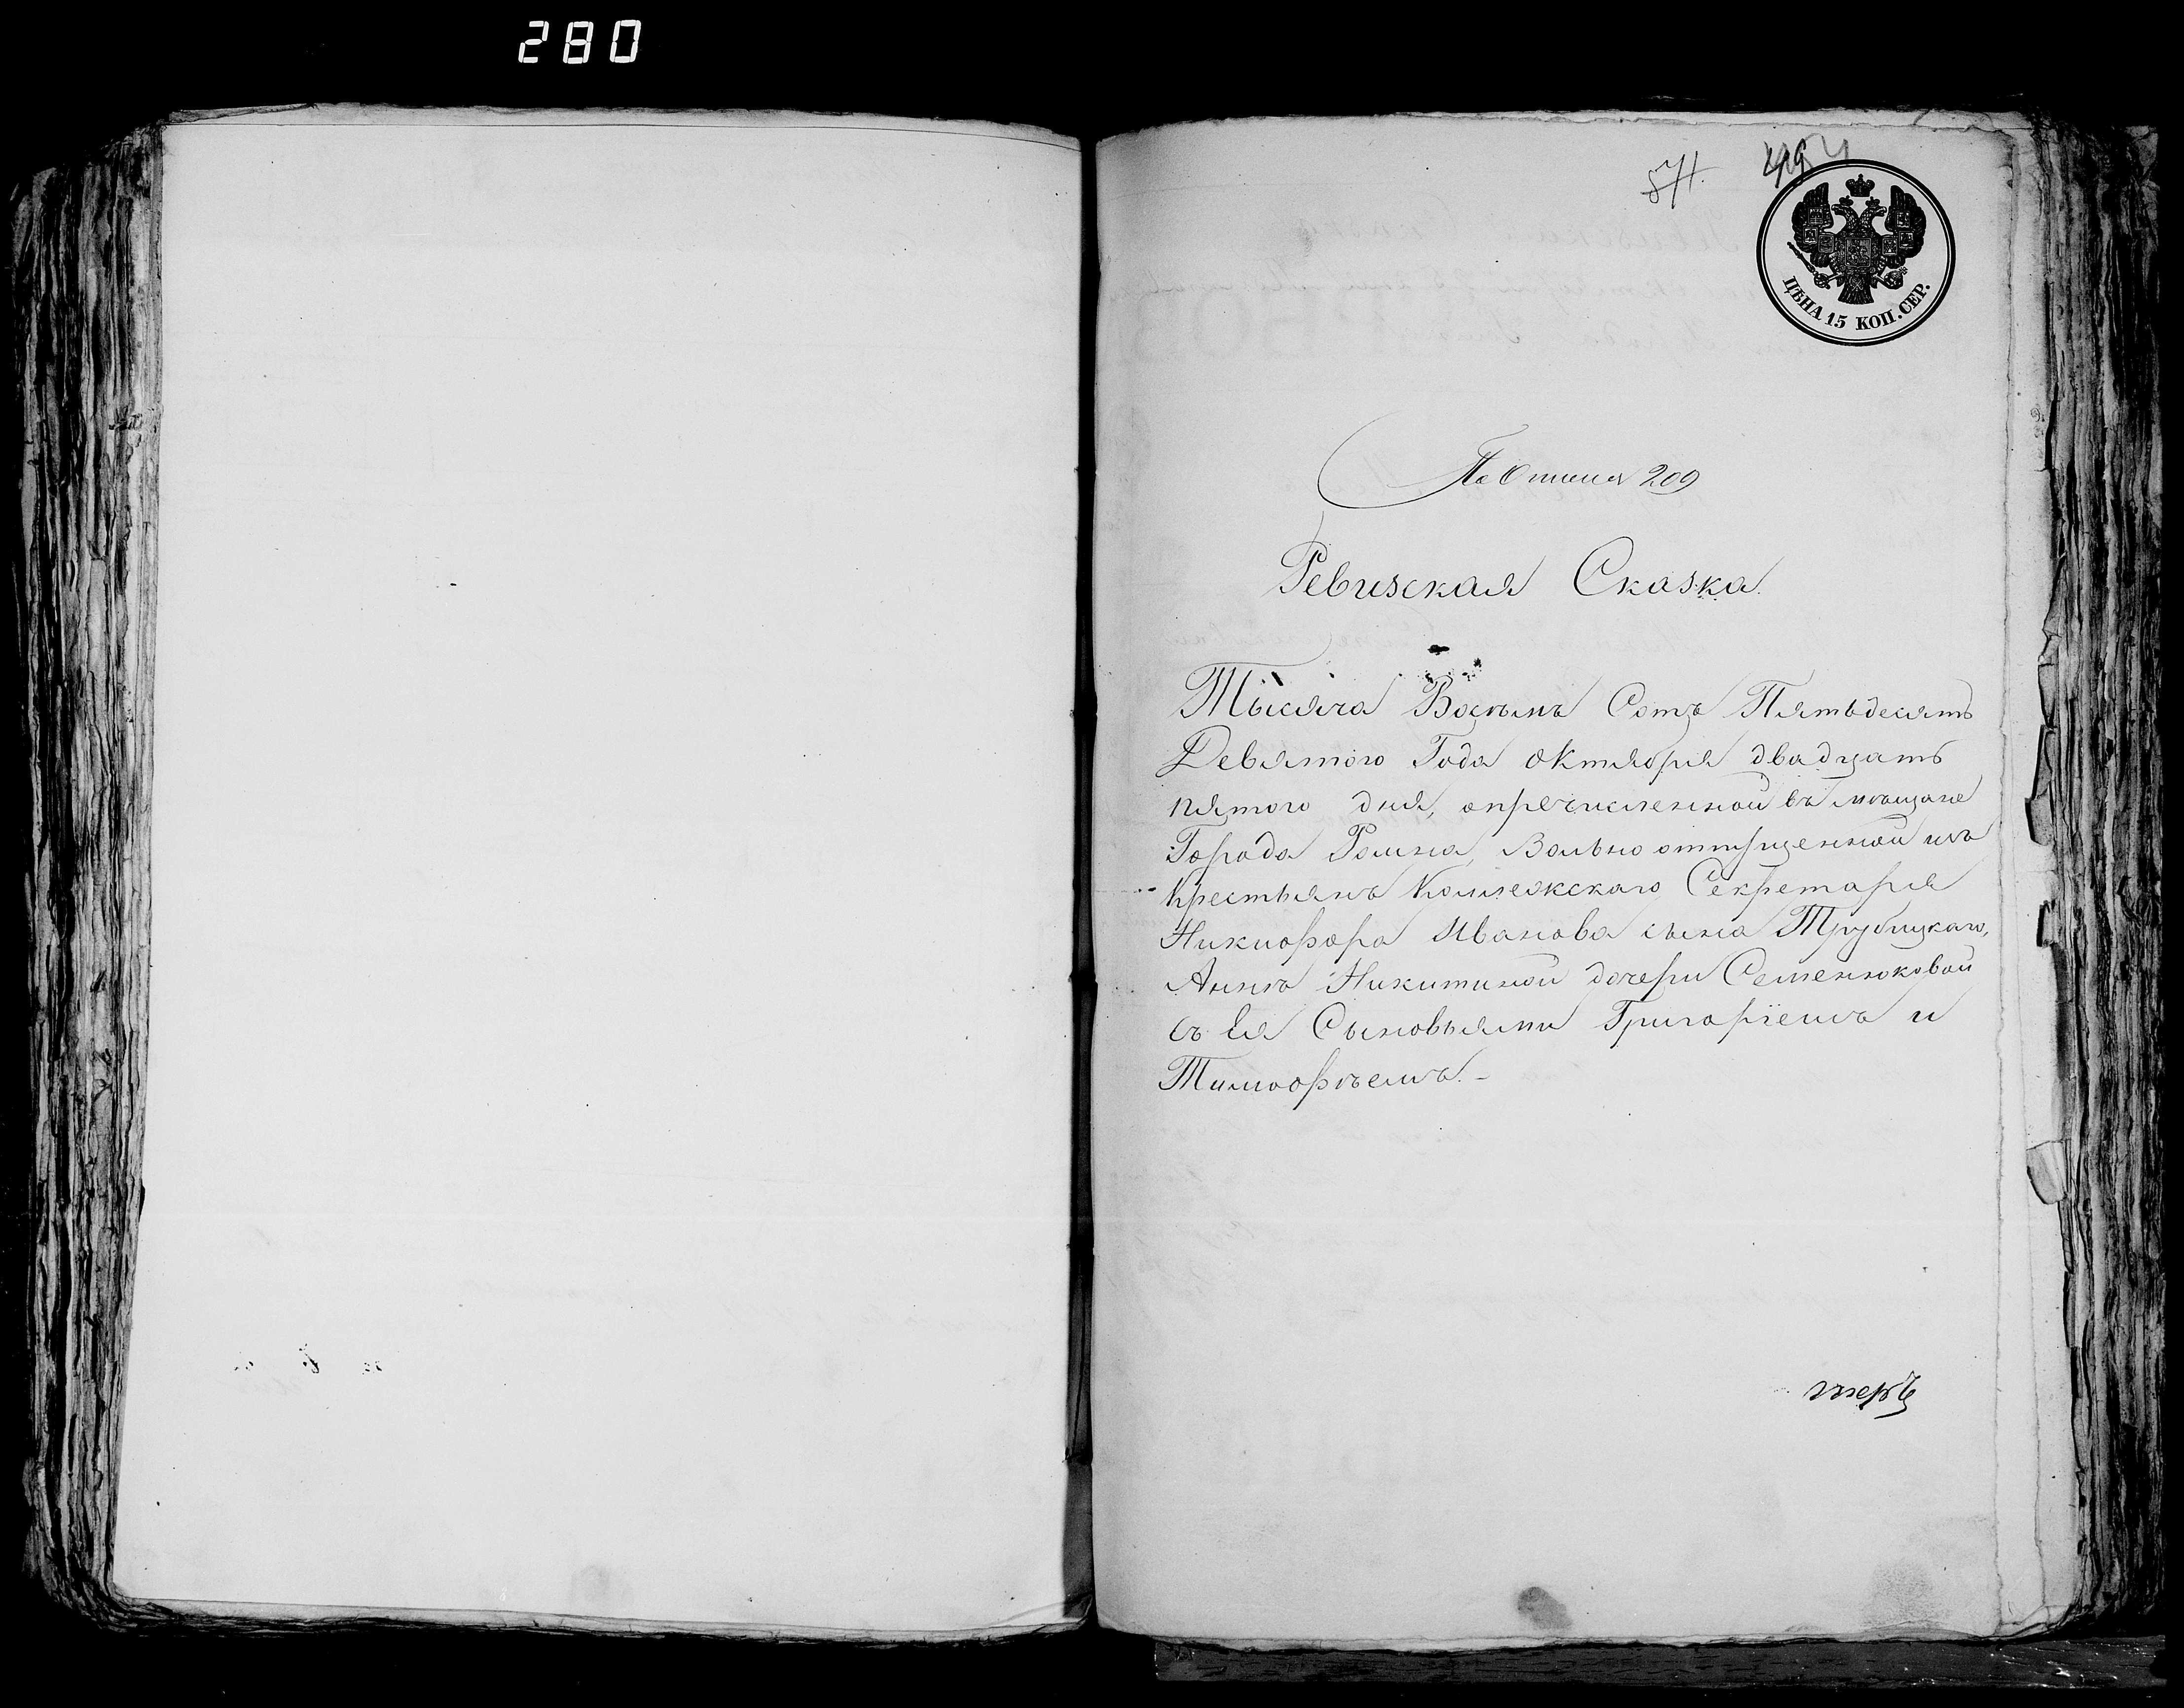 280
571.
ЦѢНА 15 КОП. СЕР.
По Описи 209
Ревизская Сказка.
Тысяча Восемь Сотъ Пятьдесятъ
Девятого Года октября двадцать
пятого дня, опречисленной въ мѣщане
Города Ромна, Вольно отпущенной изъ
Крестьянъ Коллежскаго Секретаря
Никифора Иванова сына Трубицкаго,
Аннѣ Никитиной дочери Семенюковой
съ Ея Сыновьями Григоріемъ и
Тимофѣемъ. -